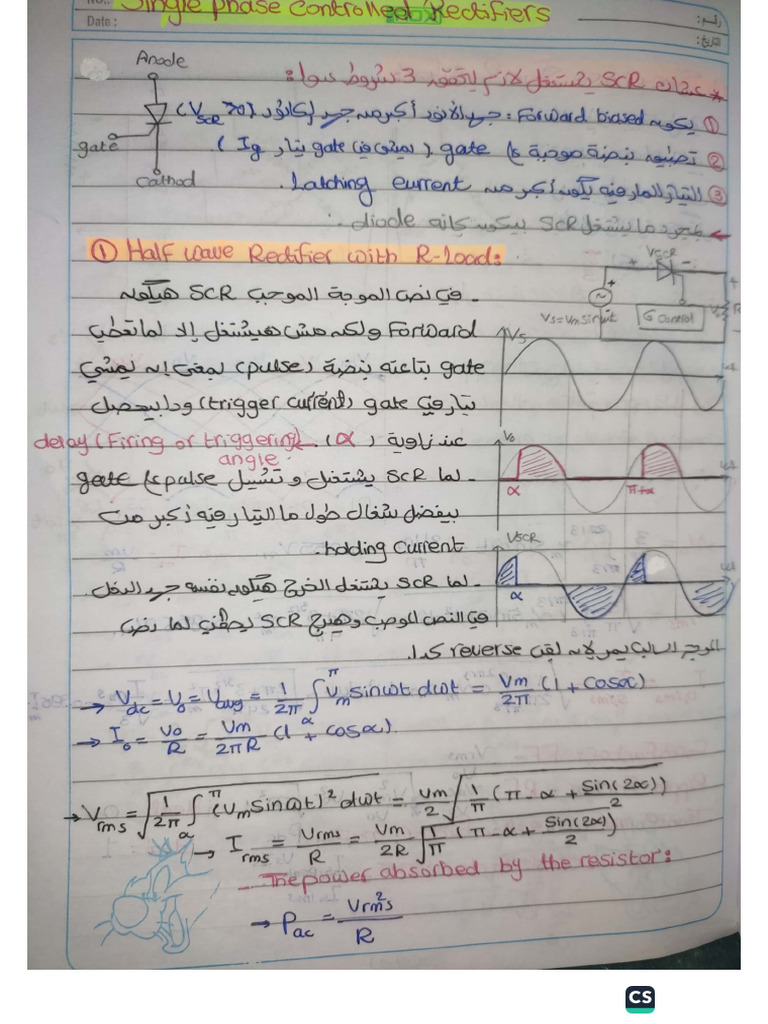 Single phase Controlled Rectifiers
No.:
Date :
رقم :
التاريخ :
Anode
gate
Cathod
* عشان SCR يشتغل لازم يتحقق 3 شروط سوا:
① يكون Forward biased : جهد الأنود أكبر من جهد الكاثود (VSCR > 0)
② تصله نبضة موجبة ع gate (يمشي في gate تيار Ig)
③ التيار المار فيه يكون أكبر من Latching current.
← بمجرد ما يشتغل SCR بيكون كانه diode.
① Half wave Rectifier with R-Load:
VSCR
+ -
Vs = Vm sin wt
G Control
- في نص الموجة الموجب SCR هيكون
Forward ولكن مش هيشتغل إلا لما تعطي
gate بتاعته نبضة (pulse) بمعنى إنه يمشي
تيار في gate (trigger current) ودا بيحصل
عند زاوية (α) delay (Firing or triggering)
angle.
- لما SCR يشتغل و تشيل pulse ع gate
بيفضل شغال طول ما التيار فيه أكبر من
holding current.
- لما SCR يشتغل الخرج هيكون نفسه جهد الدخل
في النص الموجب وهيرجع SCR يطفي لما نص
الموجة السالب يمر لانه بقى reverse كدا.
Vs
wt
Vo
wt
α
π+α
VSCR
wt
α
→ Vdc = Vo = Vavg = 1/2π ∫απ Vm sin wt dwt = Vm/2π (1 + cos α)
→ Io = Vo/R = Vm/2πR (1 + cos α).
→ Vrms = √(1/2π ∫απ (Vm sin wt)² dwt) = Vm/2 √(1/π (π - α + sin(2α)/2))
→ Irms = Vrms/R = Vm/2R √(1/π (π - α + sin(2α)/2))
- The power absorbed by the resistor:
→ Pac = Vrms²/R
CS